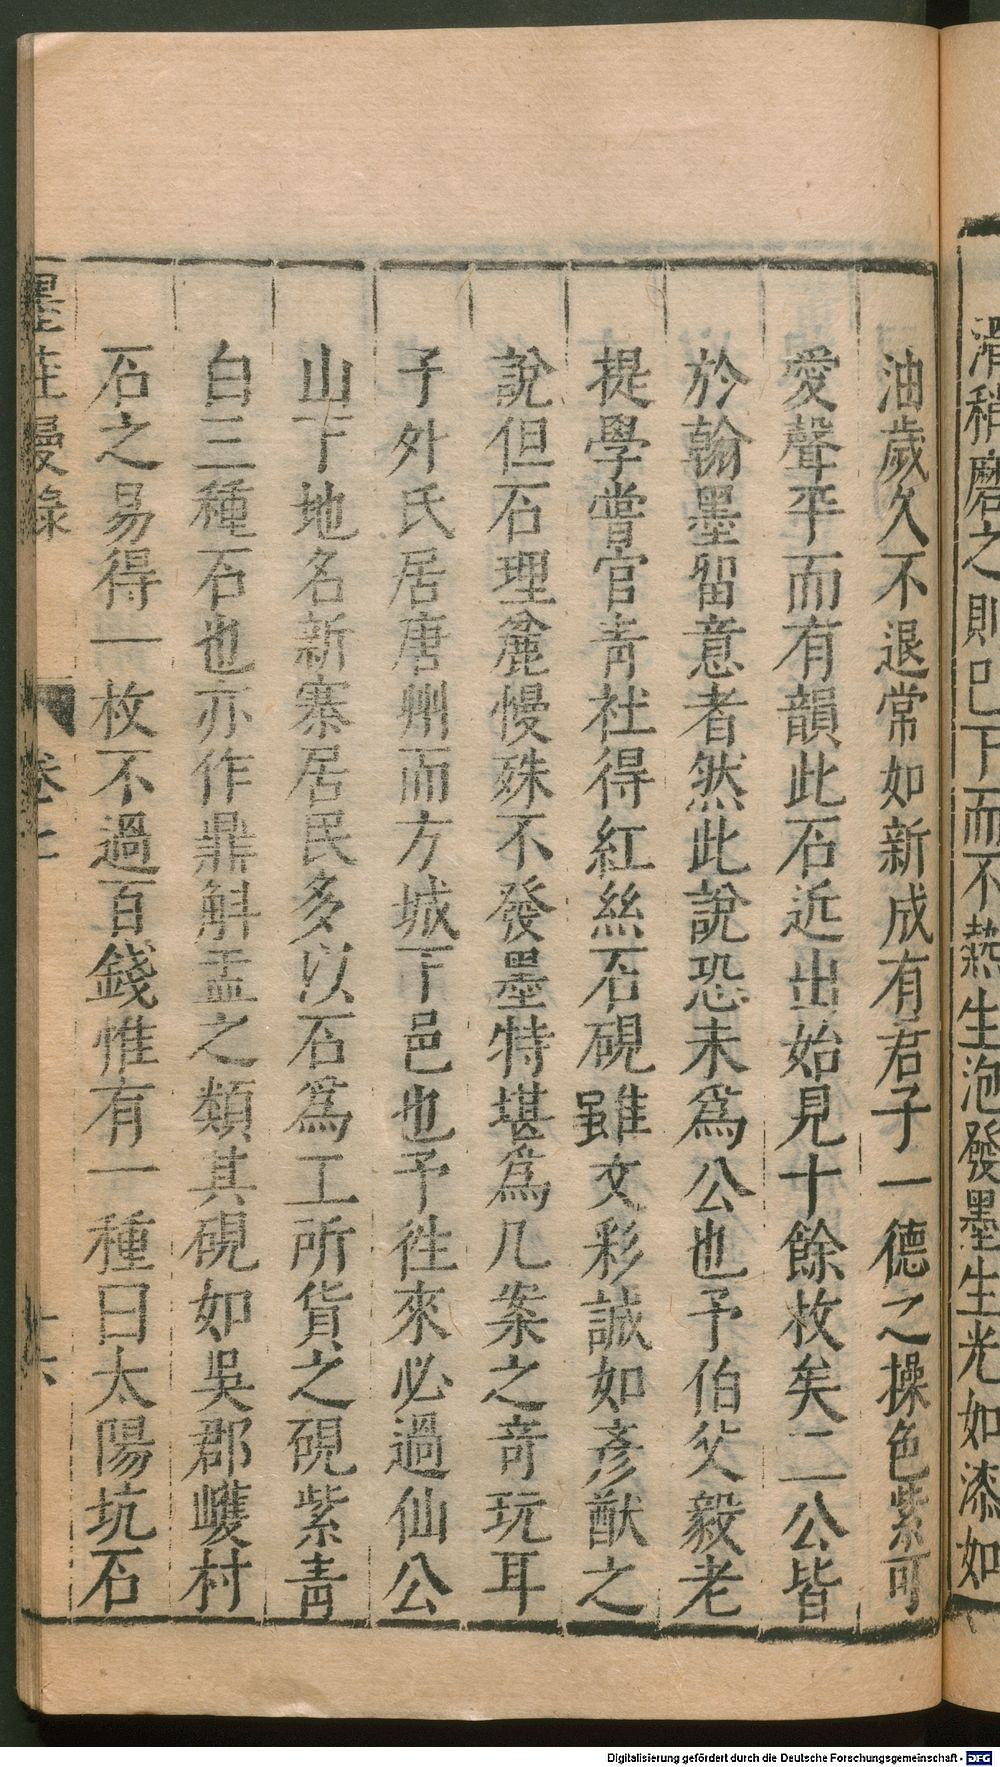 滑稍磨之則已下而不熱生泡發墨生光如漆如
油歲久不退常如新成有君子一德之操色紫可
愛聲平而有韻此石近出始見十餘枚矣二公皆
於翰墨留意者然此說恐未爲公也予伯父毅老
提學嘗官青社得紅絲石硯雖文彩誠如彥猷之
說但石理麄慢殊不發墨特堪爲几案之奇玩耳
予外氏居唐州而方城下邑也予徃來必過仙公
山下地名新寨居民多以石爲工所貨之硯紫青
白三種石也亦作鼎斛盂之類其硯如吳郡㠛村
石之易得一枚不過百錢惟有一種曰太陽坑石
墨莊漫錄 卷七 十六
Digitalisierung gefördert durch die Deutsche Forschungsgemeinschaft - DFG